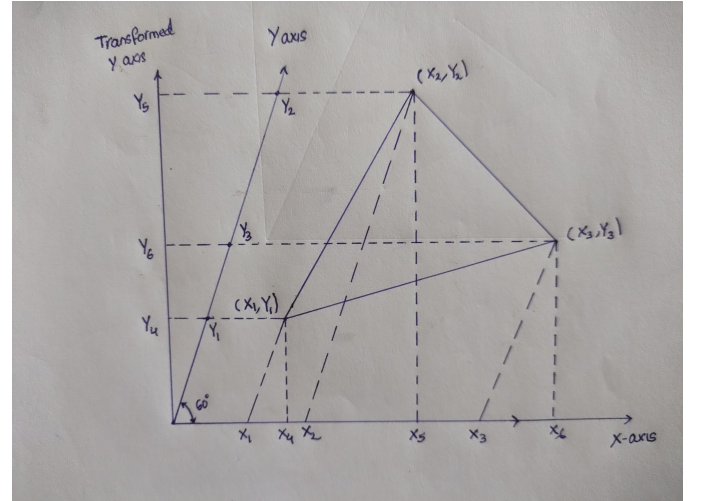 Transformed
Y axis
Y axis
(X₂,Y₂)
Y₅
Y₂
Y₃
(X₃,Y₃)
Y₆
(X₁,Y₁)
Y₄
Y₁
60°
X₁
X₄
X₂
X₅
X₃
X₆
X-axis